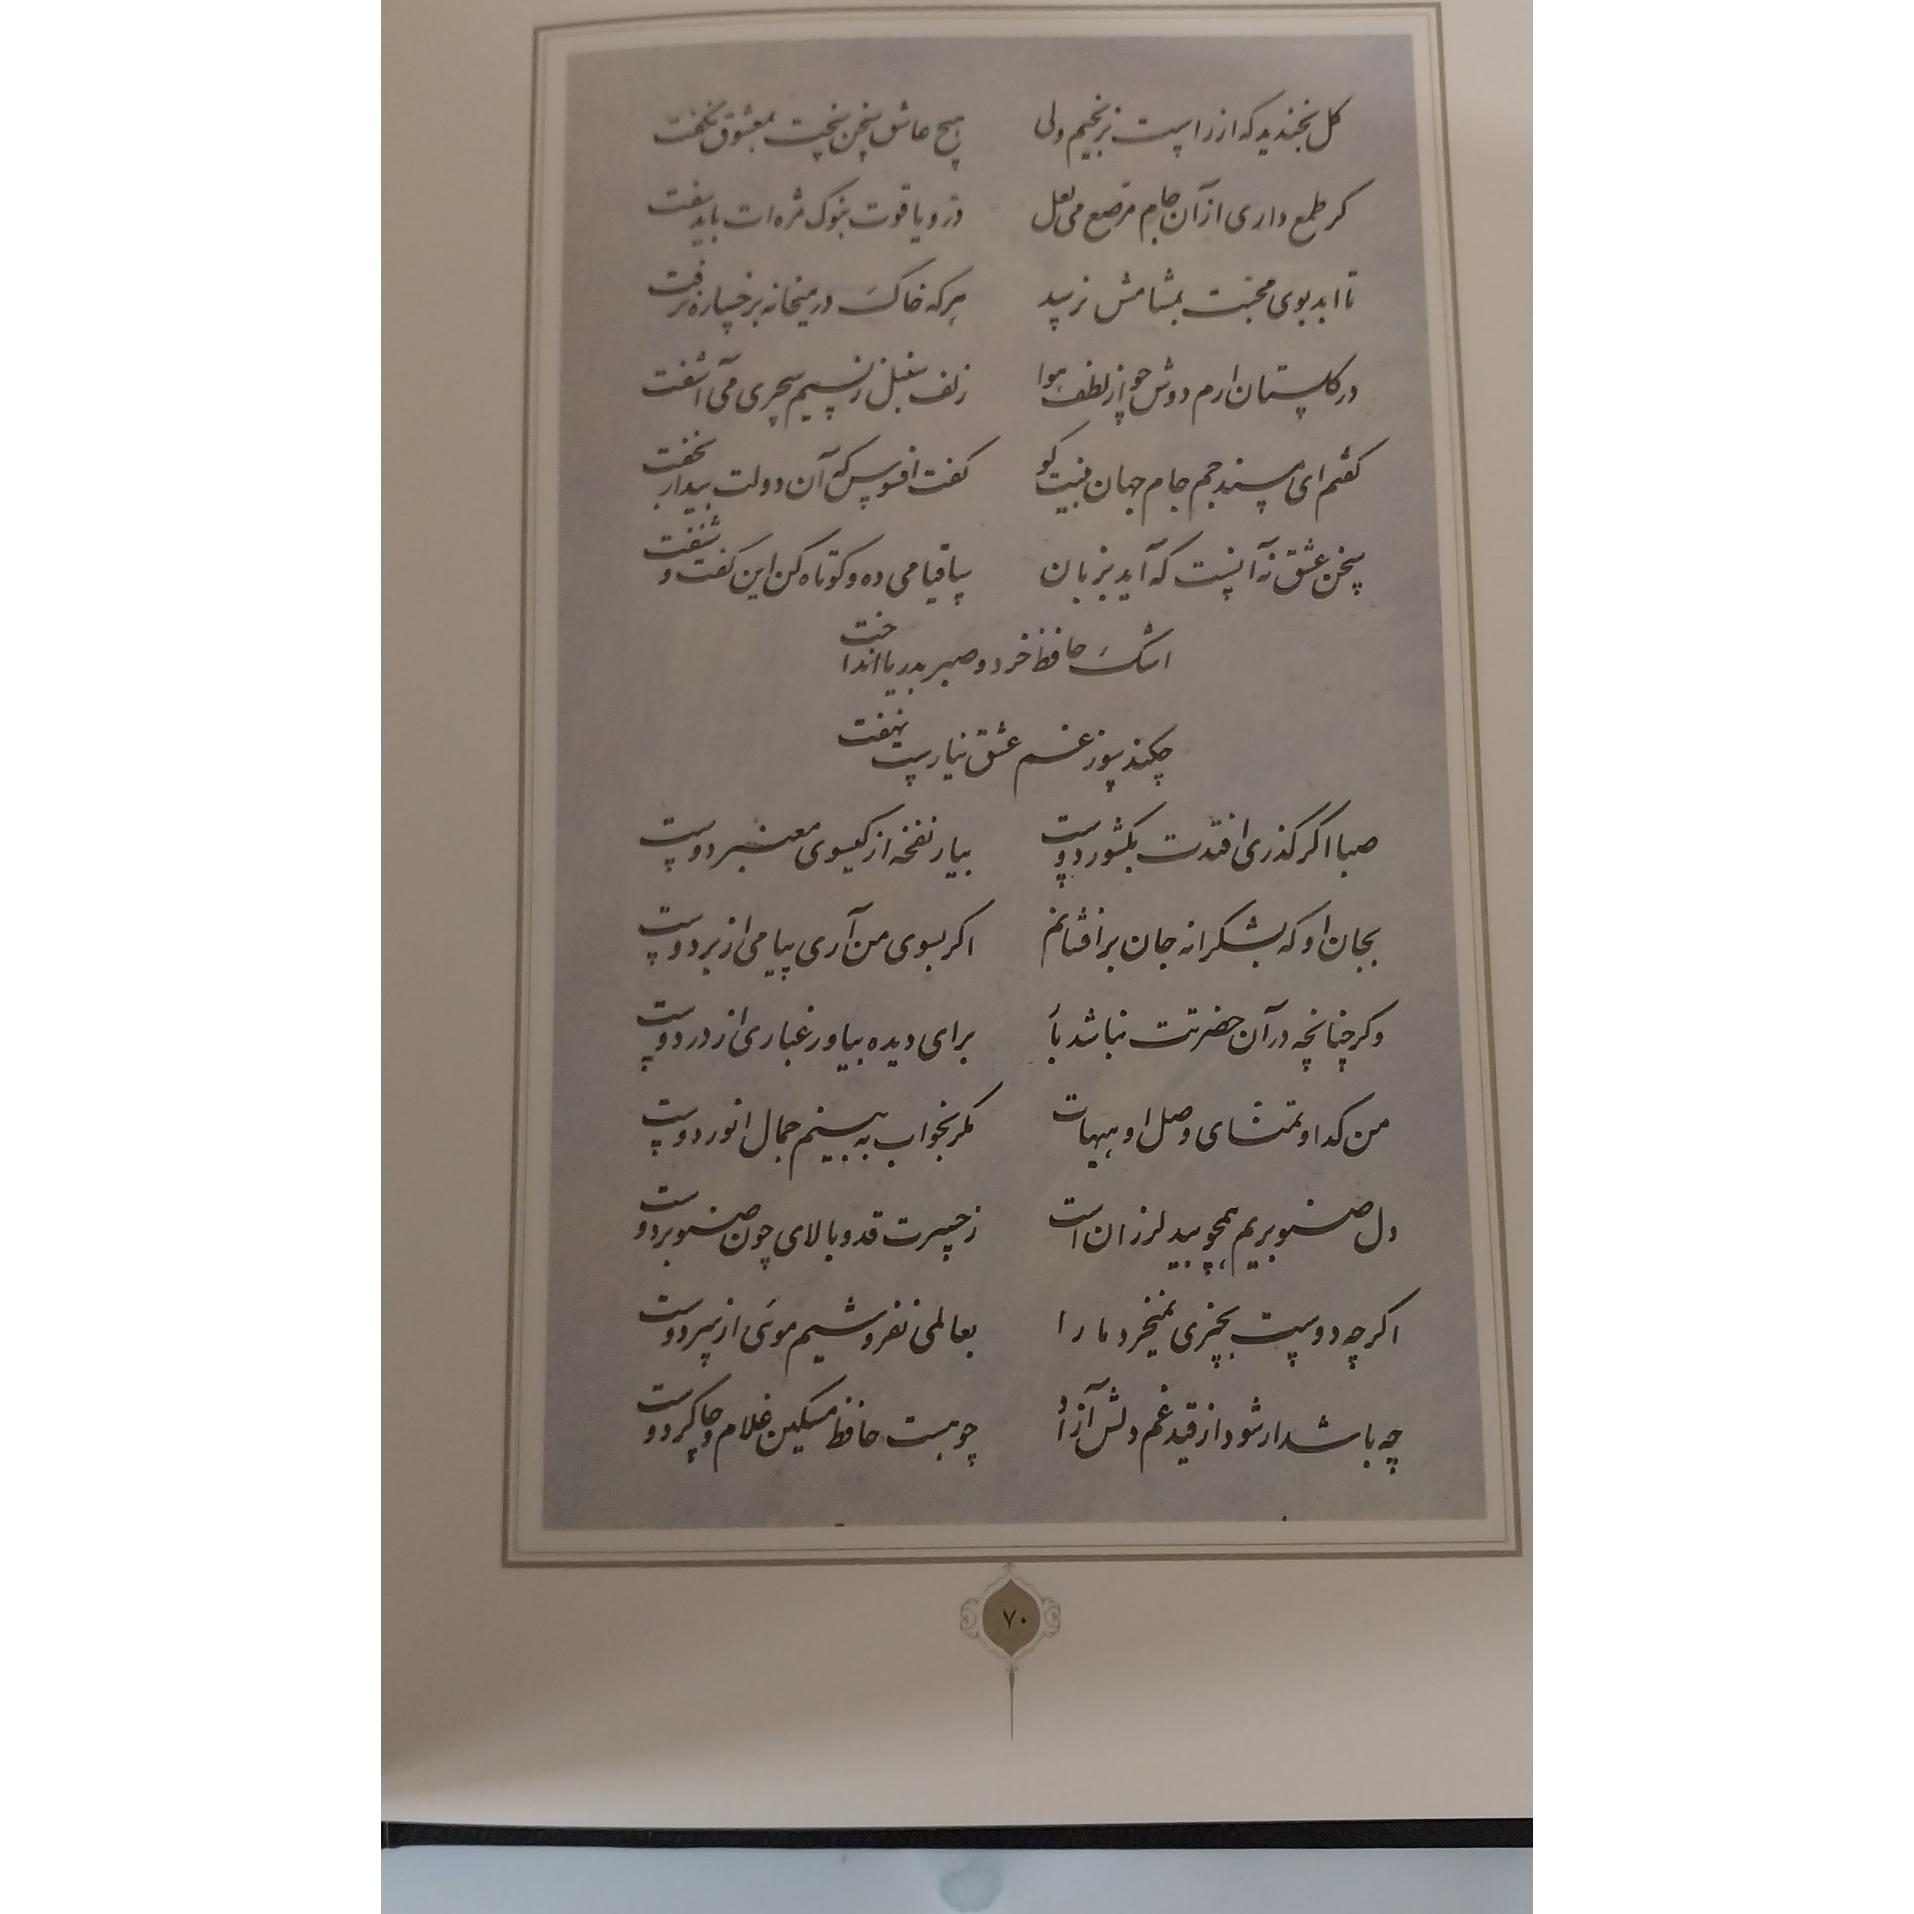 گل بخندید که از راست نرنجیم ولی هیچ عاشق سخن سخت بمعشوق نگفت
گر طمع داری از آن جام مرصع می لعل در و یاقوت بنوک مژه ات باید سفت
تا ابد بوی محبت بمشامش نرسید هرکه خاک در میخانه برخساره نرفت
در گلستان ارم دوش چو از لطف هوا زلف سنبل ز نسیم سحری می آشفت
گفتم ای مسند جم جام جهان بینت کو گفت افسوس که آن دولت بیدار بخفت
سخن عشق نه آنست که آید بزبان ساقیا می ده و کوتاه کن این گفت و شنفت
اشک حافظ خرد و صبر بدریا انداخت
چکند سوز غم عشق نیارست نهفت
صبا اگر گذری افتدت بکشور دوست بیار نفخه از گیسوی معنبر دوست
بجان او که بشکرانه جان برافشانم اگر بسوی من آری پیامی از بر دوست
و گر چنانچه در آن حضرتت نباشد بار برای دیده بیاور غباری از در دوست
من گدا و تمنای وصل او هیهات مگر بخواب به بینم جمال انور دوست
دل صنوبریم همچو بید لرزان است ز حسرت قد و بالای چون صنوبر دوست
اگرچه دوست بچیزی نمیخرد ما را بعالمی نفروشیم موئی از سر دوست
چه باشد ار شود از قید غم دلش آزاد چو هست حافظ مسکین غلام و چاکر دوست
۷۰